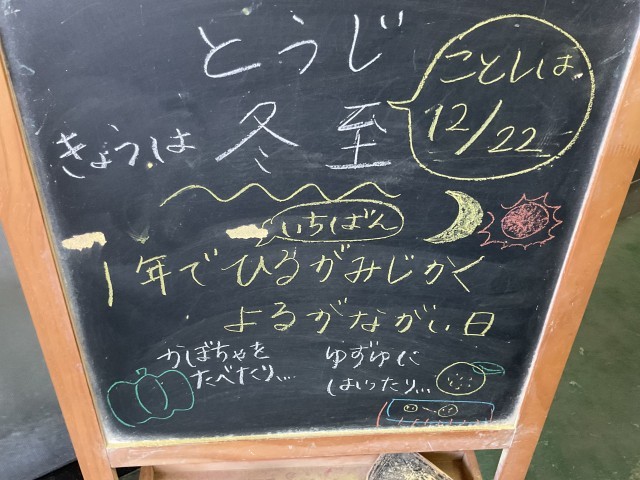 とうじ
きょうは 冬至
ことしは
12/22
いちばん
1年でひるがみじかく
よるがながい日
かぼちゃを
たべたり...
ゆずゆに
はいったり...